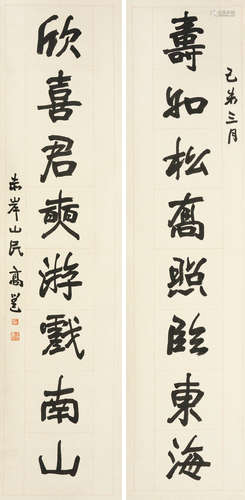 己未三月
壽如松喬照臨東海
欣喜君奭游戲南山
赤岸山民高邕